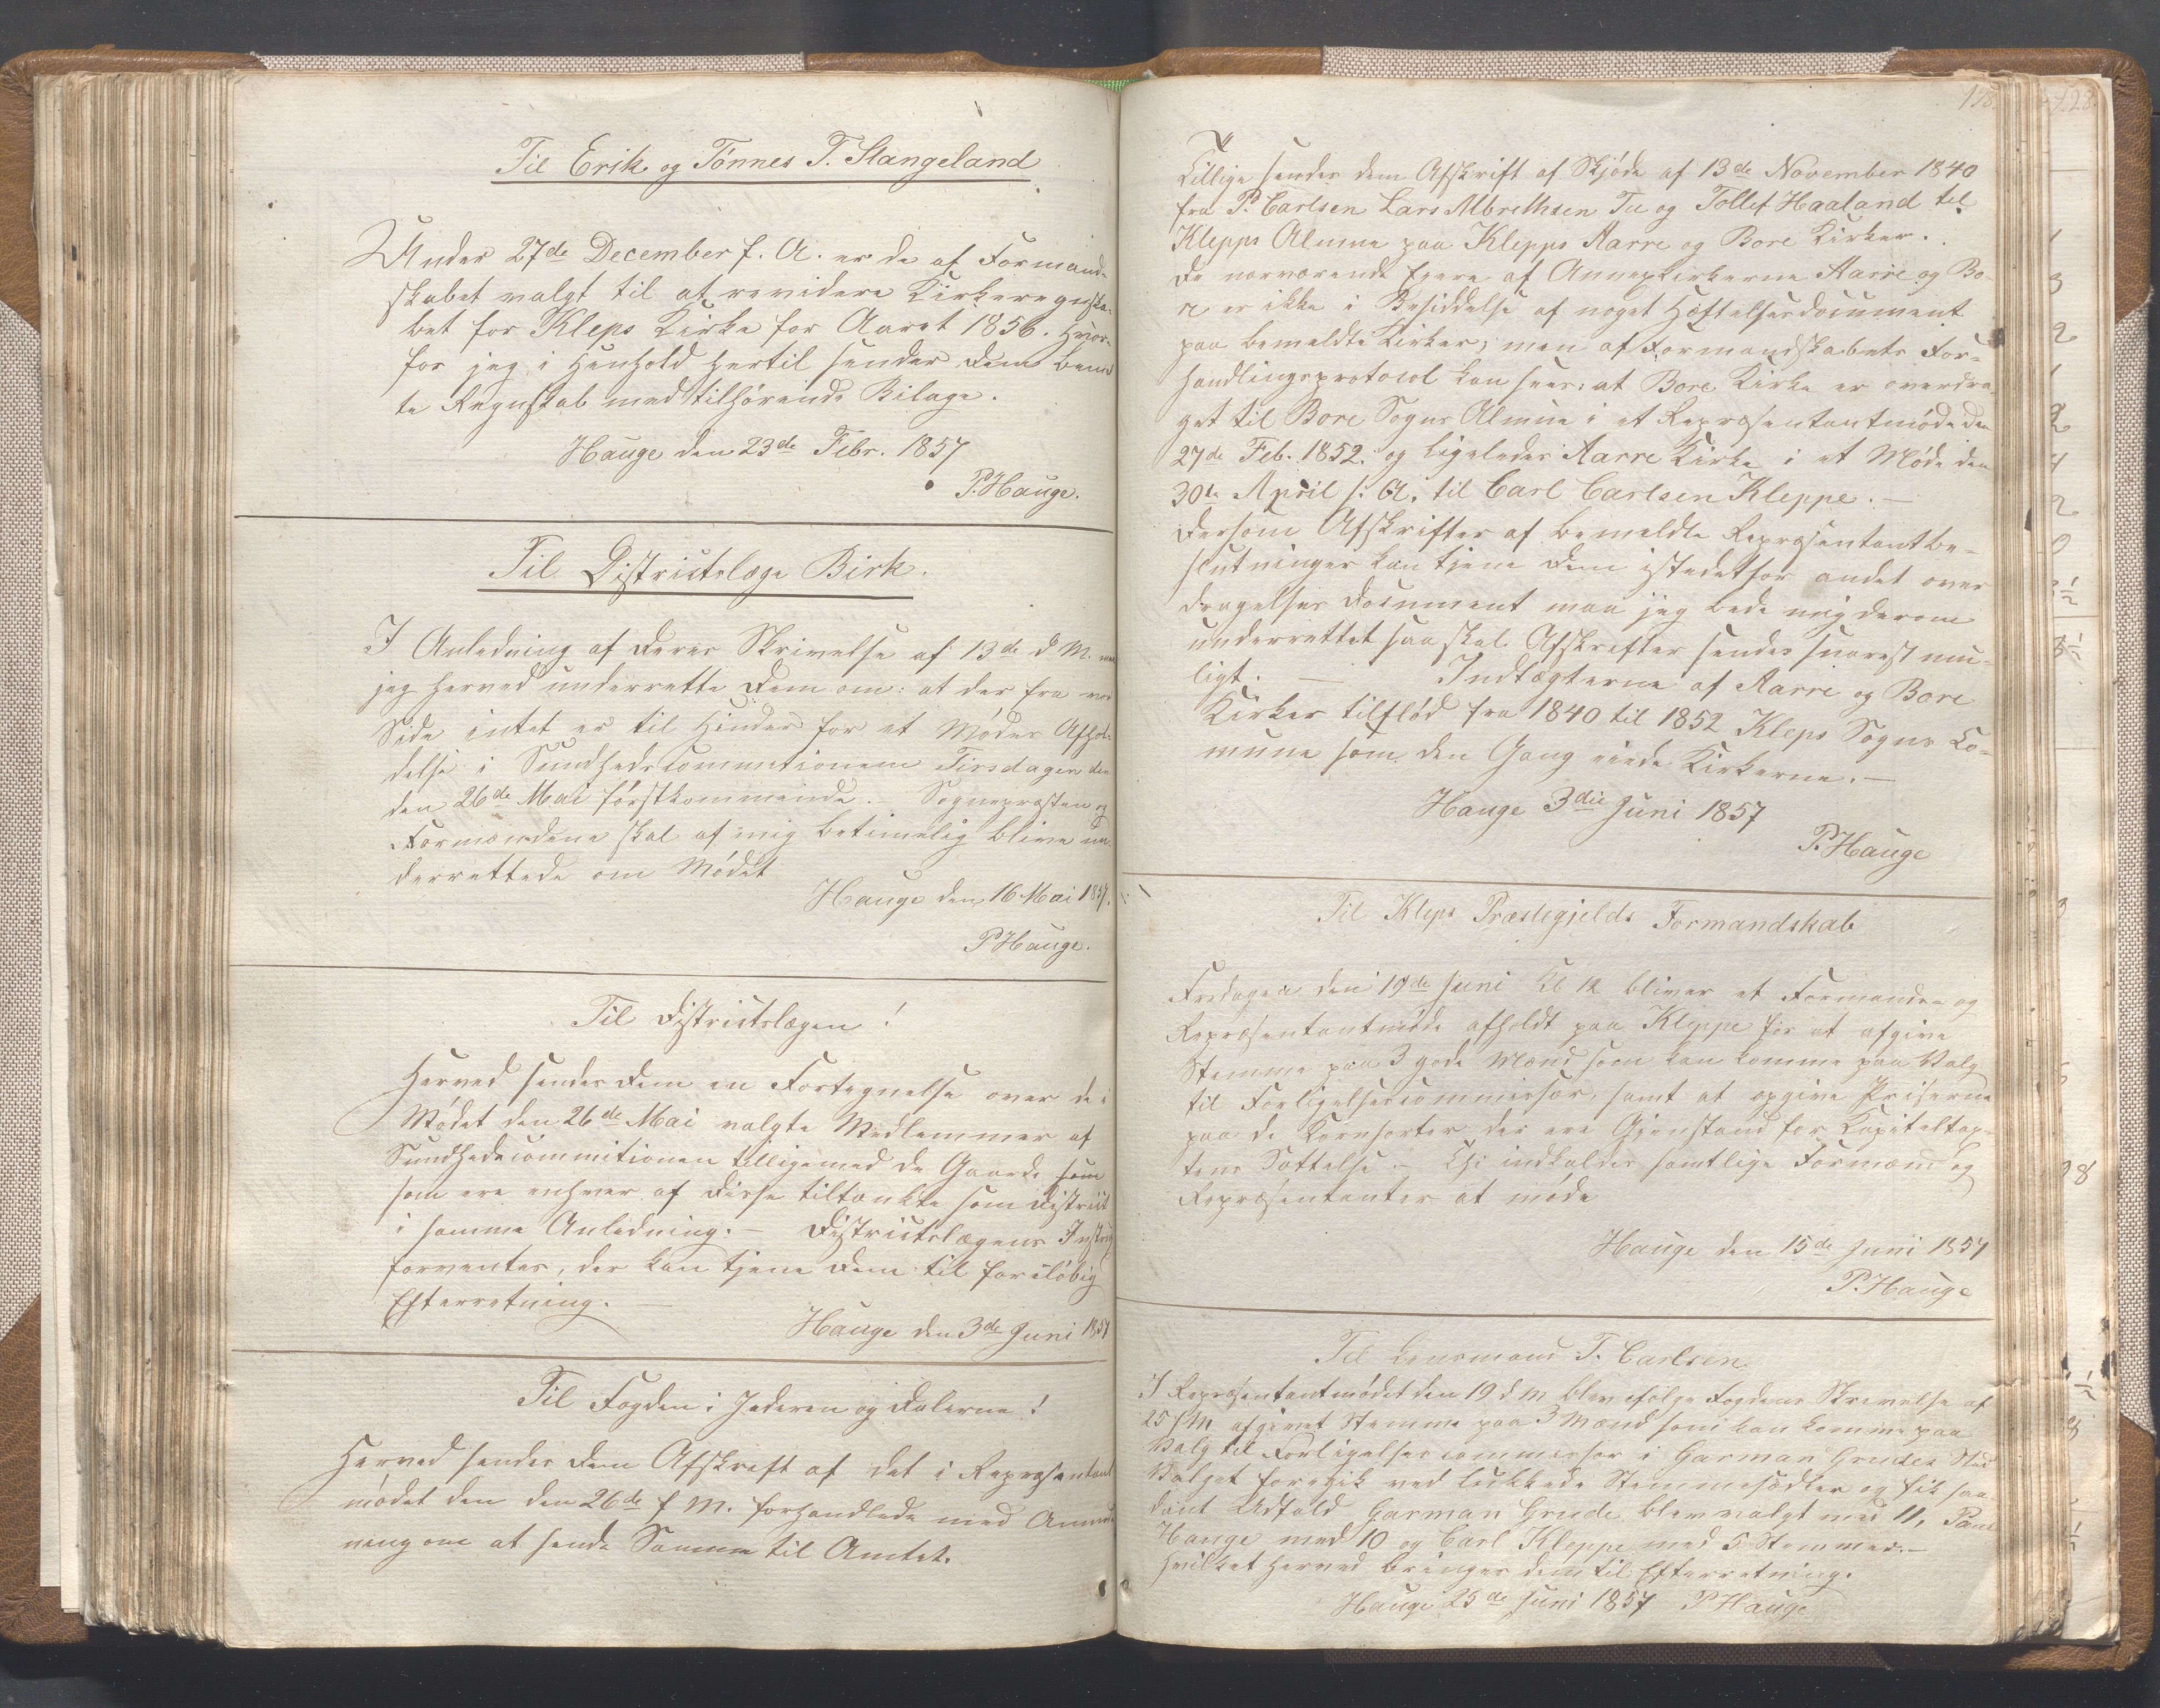 Til Erik og Tönnes T. Stangeland
Under 27de December f. A. er de af Formand-
skabet valgt til at revidere Kirkeregnska-
bet for Kleps Kirke for Aaret 1856. Hvor-
for jeg i Henhold hertil sender Dem bemd
te Regnskab med tilhörende Bilage.
Hauge den 23de Febr. 1857
P. Hauge.
Til Districtslæge Birk.
I Anledning af Deres Skrivelse af 13de d M. maa
jeg herved underrette Dem om: at der fra vor
Side intet er til Hinder for et Mödes Afhol-
delse i Sundhedscommitionem Tirsdagen den
den 26de Mai förstkommende. Sognepræsten og
Formændene skal af mig betimelig blive un
derrettede om Mödet
Hauge den 16 Mai 1857.
P Hauge.
Til Districtslægen!
Herved sendes Dem en Fortegnelse over de i
Mödet den 26de Mai valgte Medlemmer af
Sundhedscommitionen tilligemed de Gaarde som
som ere enhver af disse tiltænkte som District
i samme Anledning. – Districtslægens
forventes, der kan tjene Dem til foreløbig
Efterretning.
Hauge den 3de Juni 1857
Til Fogden i Jæderen og Dalerne!
Herved sendes Dem Afskrift af det i Repræsentant
mödet den den 26de f M. forhandlede med Anmod
ning om at sende Samme til Amtet.
118
128
Tillige sendes dem Afskrift af Skjöde af 13de November 1840
fra P. Carlsen Lars Albrethsen Tu og Tollef Haaland til
Klepps Almue paa Klepps Aarre og Bore Kirker.
De nærværende Eiere af Annexkirkerne Aarre og Bo-
re er ikke i Besiddelse af noget Hæftelsesdocument
paa bemeldte Kirker; men af Formandskabets For-
handlingsprotocol kan sees: at Bore Kirke er overdra-
get til Bore Sogns Almue i et Repræsentantmöde den
27de Feb. 1852. og ligeledes Aarre Kirke i et Möde den
30te April s. A. til Carl Carlsen Kleppe. –
Dersom Afskrifter af bemeldte Repræsentantbe-
slutninger kan tjene Dem istedetfor andet over
dragelses Document maa jeg bede mig derom
underrettet saa skal Afskrifter sendes snarest mu-
ligt. – Indtægterne af Aarre og Bore
Kirker tilflöd fra 1840 til 1852 Kleps Sogns Co-
mune som den Gang eiede Kirkerne. –
Hauge 3die Juni 1857
P. Hauge
Til Kleps Præstegjelds Formandskab
Fredagen den 19de Juni Kl 12 bliver et Formands og
Repræsentantmöde afholdt paa Kleppe for at afgive
Stemme paa 3 gode Mænd som kan komme paa Valg
til Forligelsescommissær, samt at opgive Priserne
paa de Kornsorter der ere Gjenstand for Kapiteltax-
tens Sættelse. – Thi indkaldes samtlige Formænd og
Repræsentanter at möde
Hauge den 15de Juni 1857
P. Hauge
Til Lensmand T. Carlsen
I Repræsentantmödet den 19 d M blev ifölge Fogdens Skrivelse af
25 f M afgivet Stemme paa 3 Mænd som kan komme paa
Valg til Forligelsescommissær i Garman Grudes Sted
Valget foregik ved lukkede Stemmesedler og fik saa-
dant Udfald Garman Grude blev valgt med 11, Paul
Hauge med 10 og Carl Kleppe med 5 Stemmer. –
hvilket herved bringes dem til Efterretning.
Hauge 25de Juni 1857 P Hauge